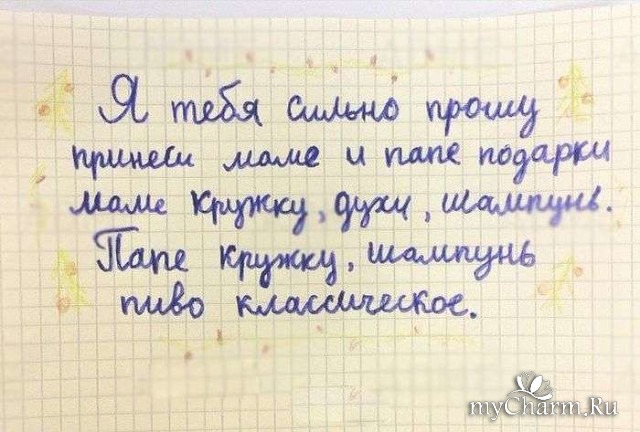 Я тебя сильно прошу
принеси маме и папе подарки
маме кружку, духи, шампунь.
Папе кружку, шампунь
пиво классическое.
myCharm.Ru